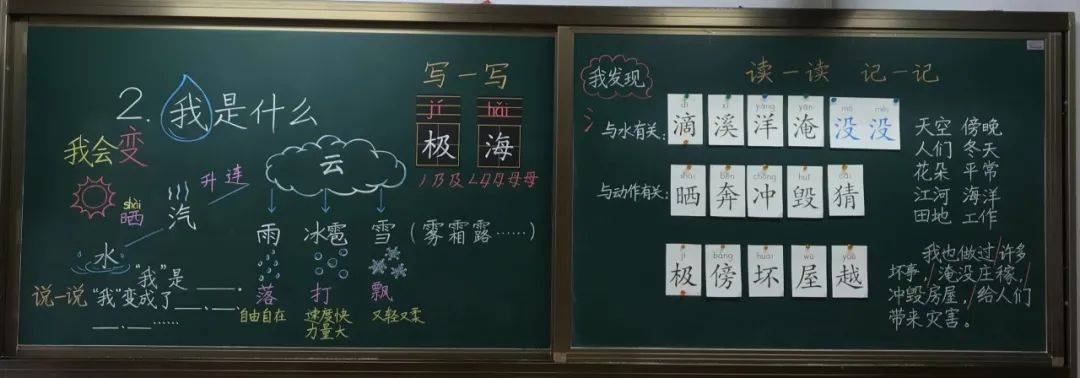 2.我是什么
我会变
shài
晒
汽
升 连
云
水
雨 冰雹 雪（雾霜露……）
落 打 飘
自由自在 速度快 又轻又柔
力量大
说一说
“我”是
“我”变成了
写一写
jí hǎi
极 海
我发现
读一读 记一记
氵
与水有关：
dī xī yáng yān mò méi
滴 溪 洋 淹 没 没
与动作有关：
shài bēn chōng huǐ cāi
晒 奔 冲 毁 猜
jí bàng huài wū yuè
极 傍 坏 屋 越
天空 傍晚
人们 冬天
花朵 平常
江河 海洋
田地 工作
我也做过/许多
坏事,/淹没庄稼,/
冲毁房屋,/给人们
带来灾害。